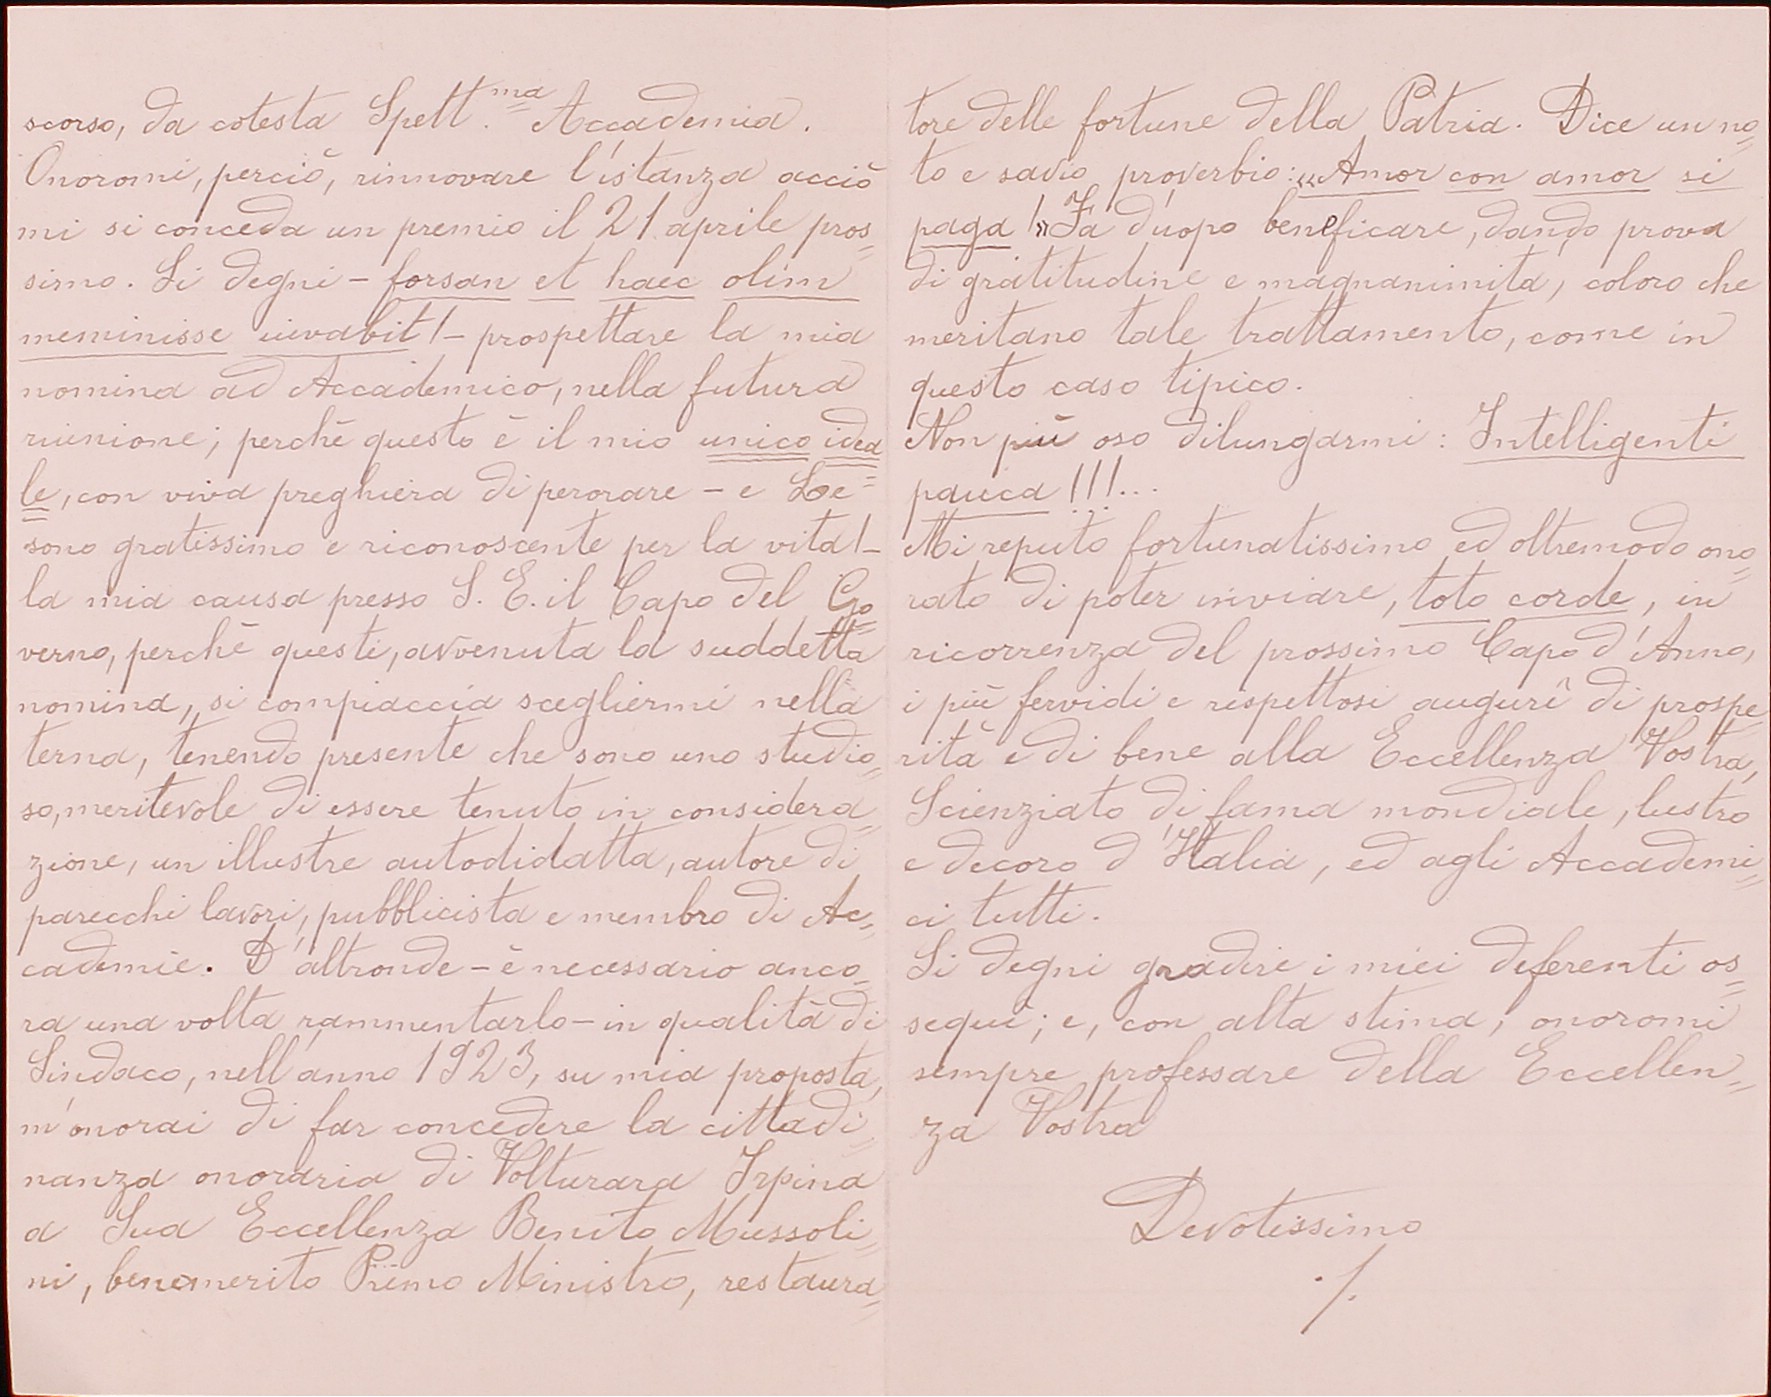 scorso, da cotesta Spett.ma Accademia.
Onoromi, perciò, rinnovare l'istanza acciò
mi si conceda un premio il 21 aprile pros=
simo. Si degni - forsan et haec olim
meminisse iuvabit! - prospettare la mia
nomina ad Accademico, nella futura
riunione; perchè questo è il mio unico idea
le, con viva preghiera di perorare - e Le =
sono gratissimo e riconoscente per la vita! -
la mia causa presso S. E. il Capo del Go=
verno, perchè questi, avvenuta la suddetta
nomina, si compiaccia scegliermi nella
terna, tenendo presente che sono uno studio=
so, meritevole di essere tenuto in considera=
zione, un illustre autodidatta, autore di
parecchi lavori, pubblicista e membro di Ac=
cademie. D'altronde - è necessario anco=
ra una volta rammentarlo - in qualità di
Sindaco, nell'anno 1923, su mia proposta,
m'onorai di far concedere la cittadi=
nanza onoraria di Volturara Irpina
a Sua Eccellenza Benito Mussoli=
ni, benemerito Primo Ministro, restaura=
tore delle fortune della Patria. Dice un no=
to e savio proverbio: «Amor con amor si
paga!» Fa d'uopo beneficare, dando prova
di gratitudine e magnanimità, coloro che
meritano tale trattamento, come in
questo caso tipico.
Non più oso dilungarmi: Intelligenti
pauca!!!...
Mi reputo fortunatissimo ed oltremodo ono=
rato di poter inviare, toto corde, in
ricorrenza del prossimo Capo d'Anno,
i più fervidi e rispettosi augurî di prospe=
rità e di bene alla Eccellenza Vostra,
Scienziato di fama mondiale, lustro
e decoro d'Italia, ed agli Accademi=
ci tutti.
Si degni gradire i miei deferenti os=
sequi; e, con alta stima, onoromi
sempre professare della Eccellen=
za Vostra
Devotissimo